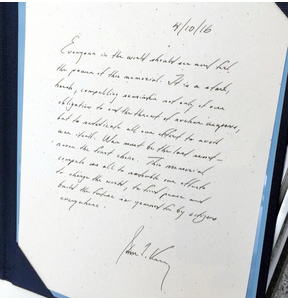 4/10/16
Everyone in the world should see and feel
the power of the memorial. It is a stark,
harsh, compelling reminder not only of our
obligation to end the threat of nuclear weapons,
but to rededicate all our effort to avoid
war itself. War must be the last resort -
never the first choice. This memorial
compels us all to redouble our efforts
to change the world, to find peace and
build the future so yearned for by citizens
everywhere.
John F. Kerry